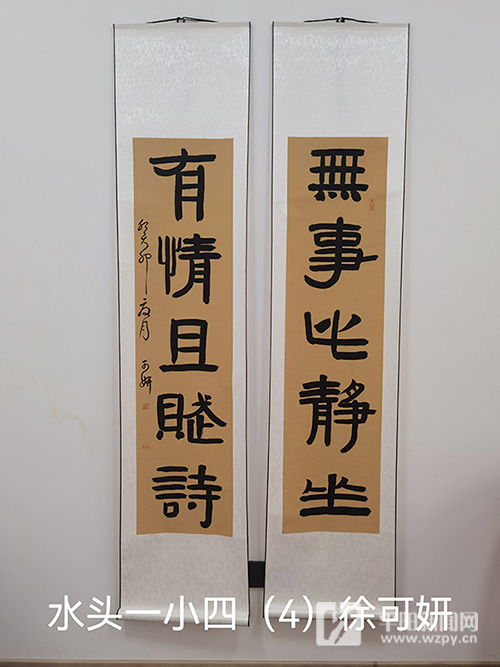 無事此靜坐
有情且賦詩
癸卯夏月 可妍
水头一小四（4）徐可妍
平阳新闻网
www.wzpy.cn